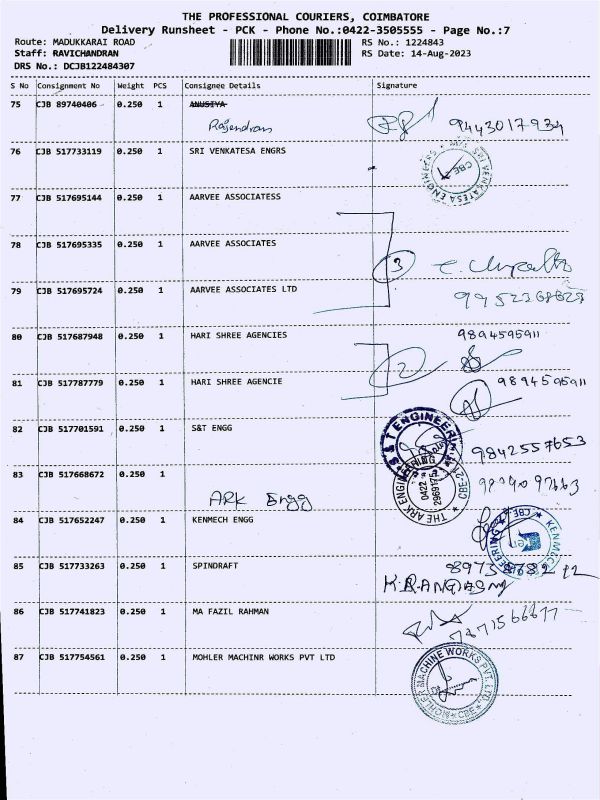 THE PROFESSIONAL COURIERS, COIMBATORE
Delivery Runsheet - PCK - Phone No.:0422-3505555 - Page No.:7
Route: MADUKKARAI ROAD RS No.: 1224843
Staff: RAVICHANDRAN RS Date: 14-Aug-2023
DRS No.: DCJB122484307
S No Consignment No Weight PCS Consignee Details Signature
75 CJB 89740406 0.250 1 ANUSIYA
Rajendran 9443017934
76 CJB 517733119 0.250 1 SRI VENKATESA ENGRS
M/S SRI VENKATESA ENGINEERS CBE
77 CJB 517695144 0.250 1 AARVEE ASSOCIATESS
78 CJB 517695335 0.250 1 AARVEE ASSOCIATES
3
79 CJB 517695724 0.250 1 AARVEE ASSOCIATES LTD
80 CJB 517687948 0.250 1 HARI SHREE AGENCIES 9894595911
2
81 CJB 517787779 0.250 1 HARI SHREE AGENCIE 9894595911
82 CJB 517701591 0.250 1 S&T ENGG
S & T ENGINEERING 9842557653
83 CJB 517668672 0.250 1
ARK Engg
THE ARK ENGINEERING CBE-21
0422
84 CJB 517652247 0.250 1 KENMECH ENGG
85 CJB 517733263 0.250 1 SPINDRAFT
86 CJB 517741823 0.250 1 MA FAZIL RAHMAN
87 CJB 517754561 0.250 1 MOHLER MACHINR WORKS PVT LTD
MOHLER MACHINE WORKS PVT. LTD. CBE